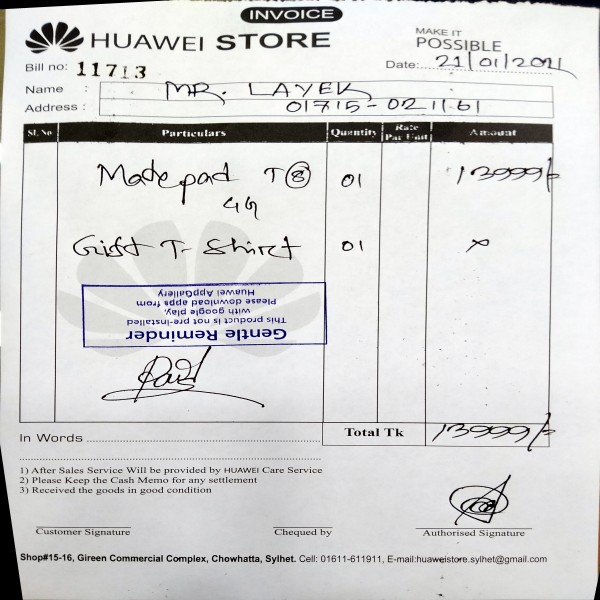 INVOICE
HUAWEI STORE
MAKE IT
POSSIBLE
Bill no: 11713
Date: 21/01/2021
Name : MR. LAYEK
Address : 01715-021161
SL No Particulars Quantity Rate Par Unit Amount
Matepad T 8 01 13999/-
4G
Gift T-Shirt 01 x
Gentle Reminder
This product is not pre-installed
with google play,
Please download apps from
Huawei AppGallery
In Words
Total Tk 13999/-
1) After Sales Service Will be provided by HUAWEI Care Service
2) Please Keep the Cash Memo for any settlement
3) Received the goods in good condition
Customer Signature Chequed by Authorised Signature
Shop#15-16, Gireen Commercial Complex, Chowhatta, Sylhet. Cell: 01611-611911, E-mail:huaweistore.sylhet@gmail.com